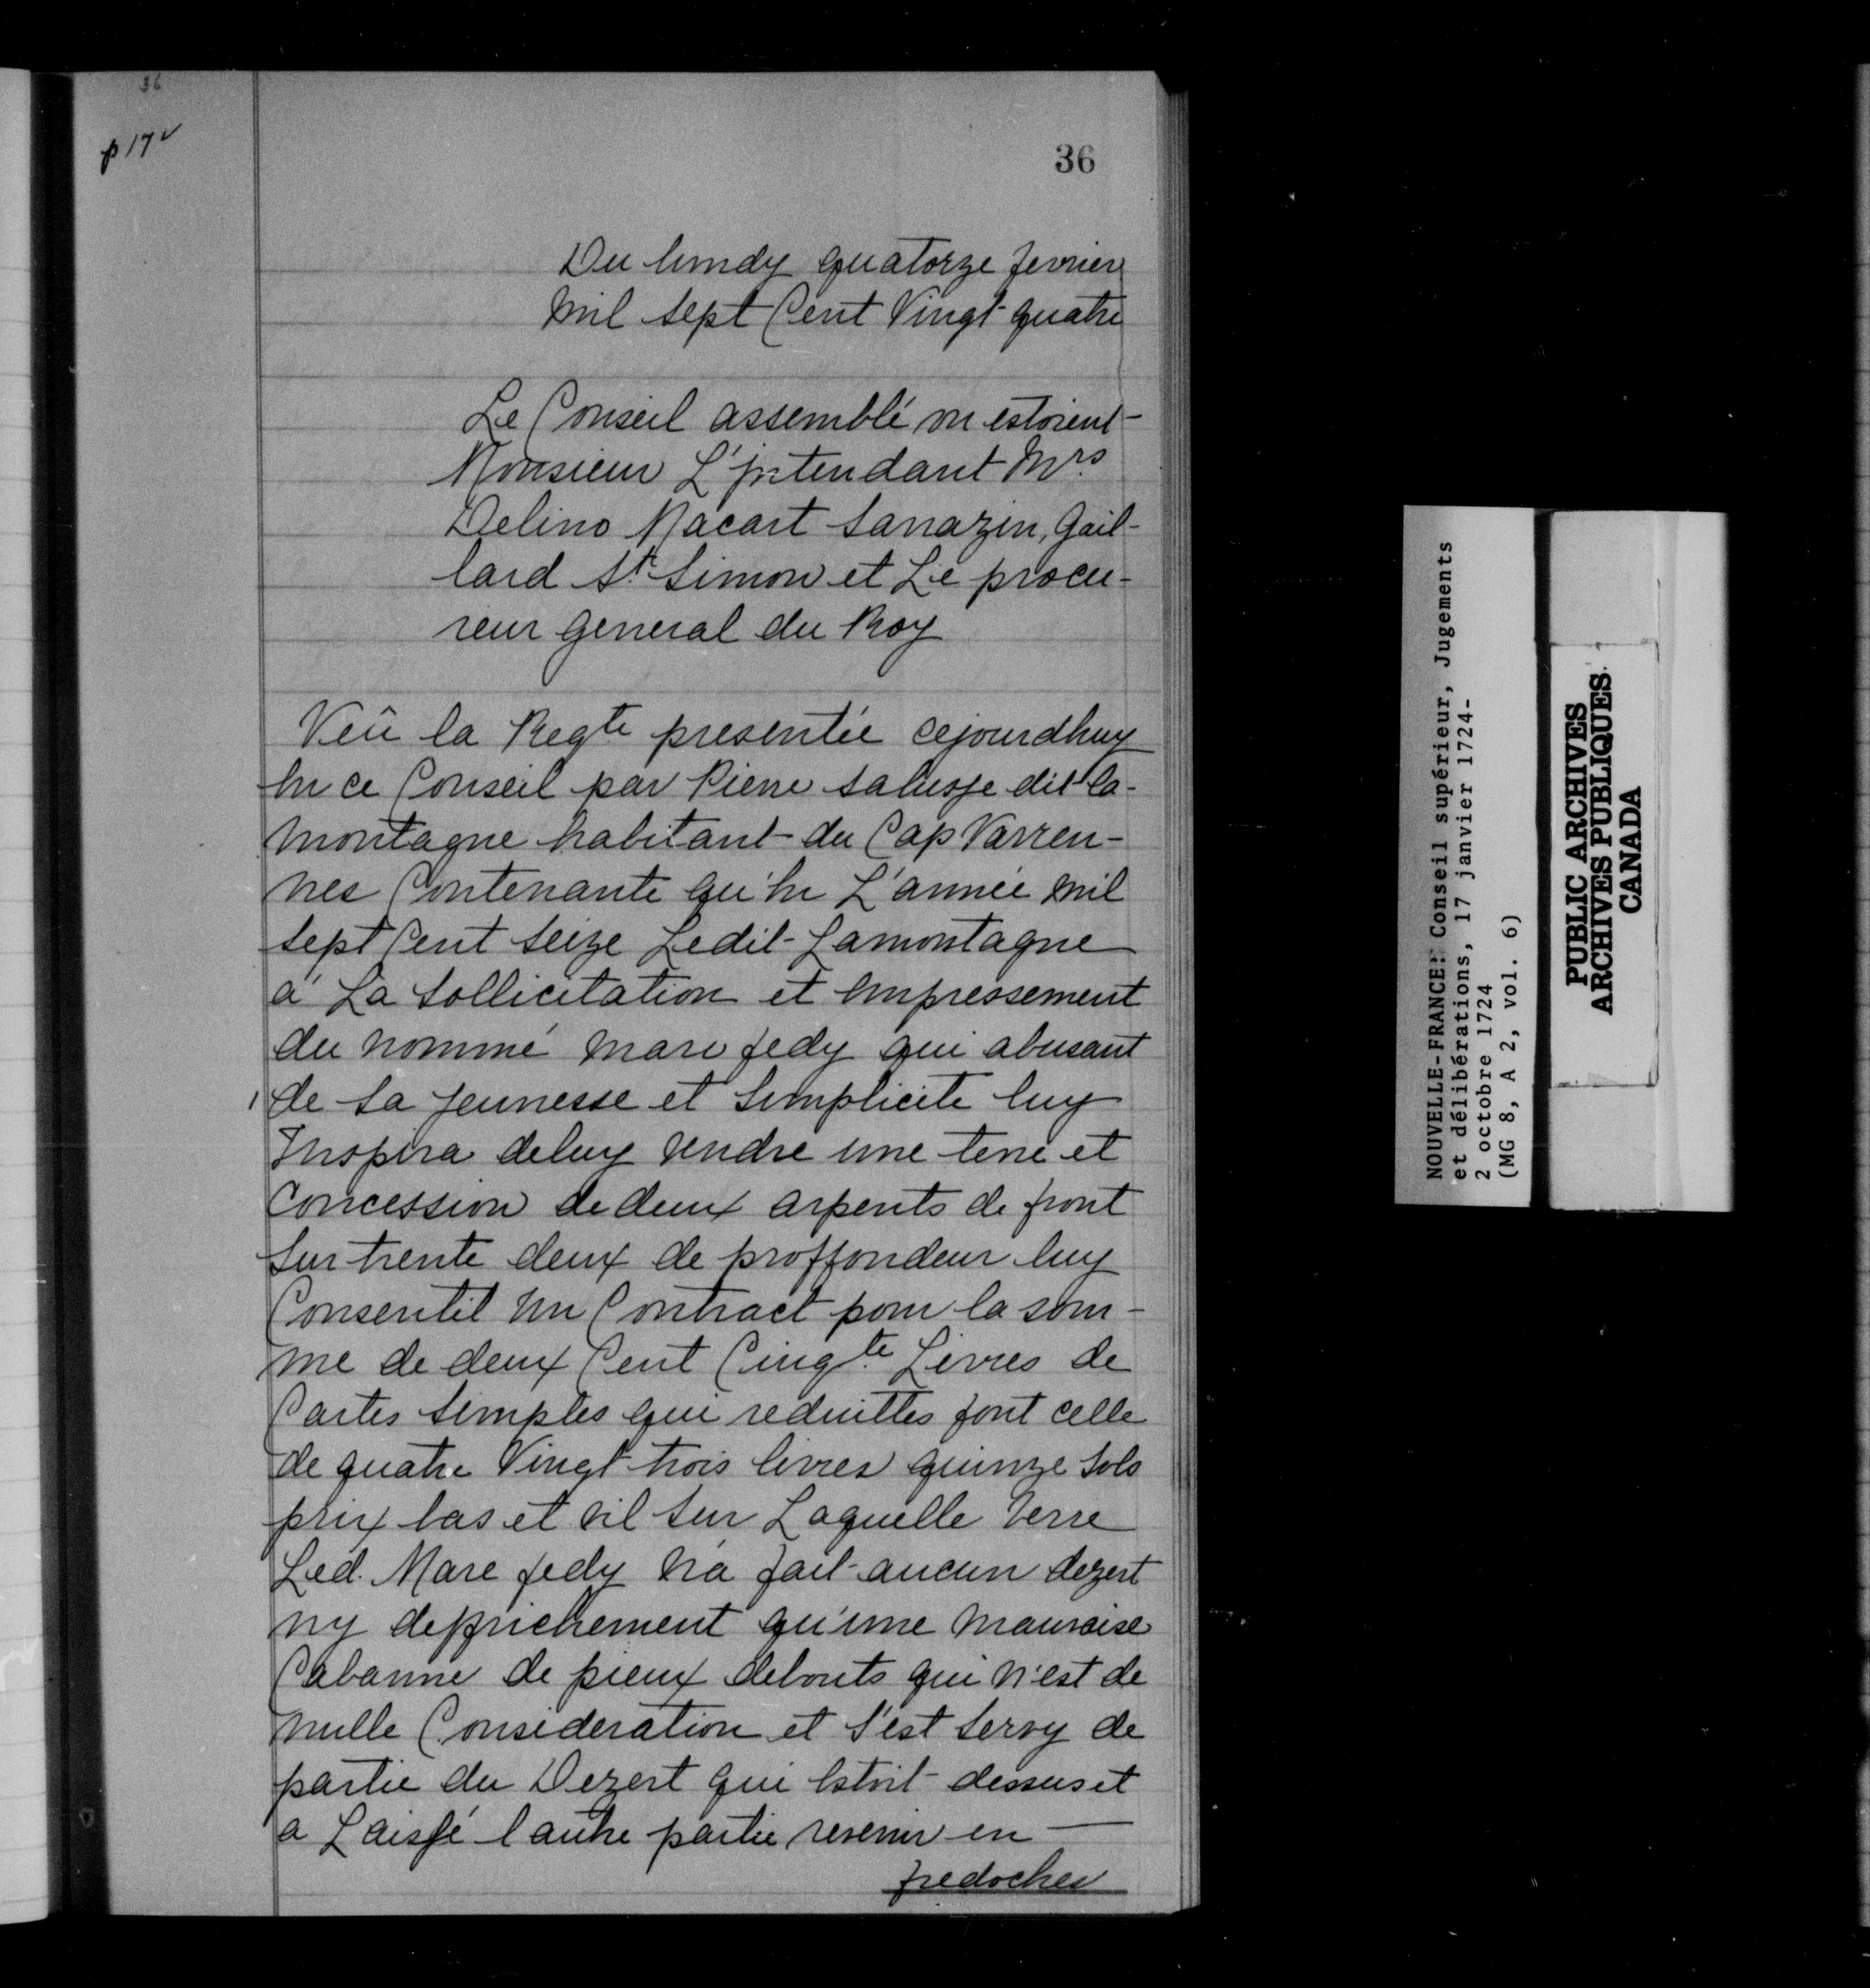 36
p 17v
36
Du lundy quatorze fevrier
Mil Sept Cent Vingt-quatre
Le Conseil assemblé ou estoient
Monsieur L'jntendant Mrs
Delino Macart Sarrazin, Gail-
lard St. Simon et Le procu-
reur general du Roy
Veû la Reqte presentée cejourdhuy
En ce Conseil par Pierre Salusse dit la-
Montagne habitant du Cap Varren-
nes Contenante qu'En L'année Mil
Sept Cent Seize Ledit Lamontagne
a La Sollicitation et Empressement
du nommé Marc fedy qui abusant
de Sa Jeunesse et Simplicite luy
Inspira deluy Vendre une terre et
Concession de deux arpents de front
Sur trente deux de proffondeur luy
Consentit Un Contract pour la som-
me de deux Cent Cinqte Livres de
Cartes Simples qui reduittes font celle
de quatre Vingt trois livres quinze Sols
prix bas et Vil Sur Laquelle terre
Led. Marc fedy N'a fait aucun dezert
ny deffrichement qu'une Mauvaise
Cabanne de pieux debouts qui N'est de
Nulle Consideration et S'est Servy de
partie du Dezert qui Estoit dessus et
a Laissé l'autre partie revenir en
fredoches
NOUVELLE-FRANCE: Conseil supérieur, Jugements
et délibérations, 17 janvier 1724-
2 octobre 1724
(MG 8, A 2, vol. 6)
PUBLIC ARCHIVES
ARCHIVES PUBLIQUES
CANADA